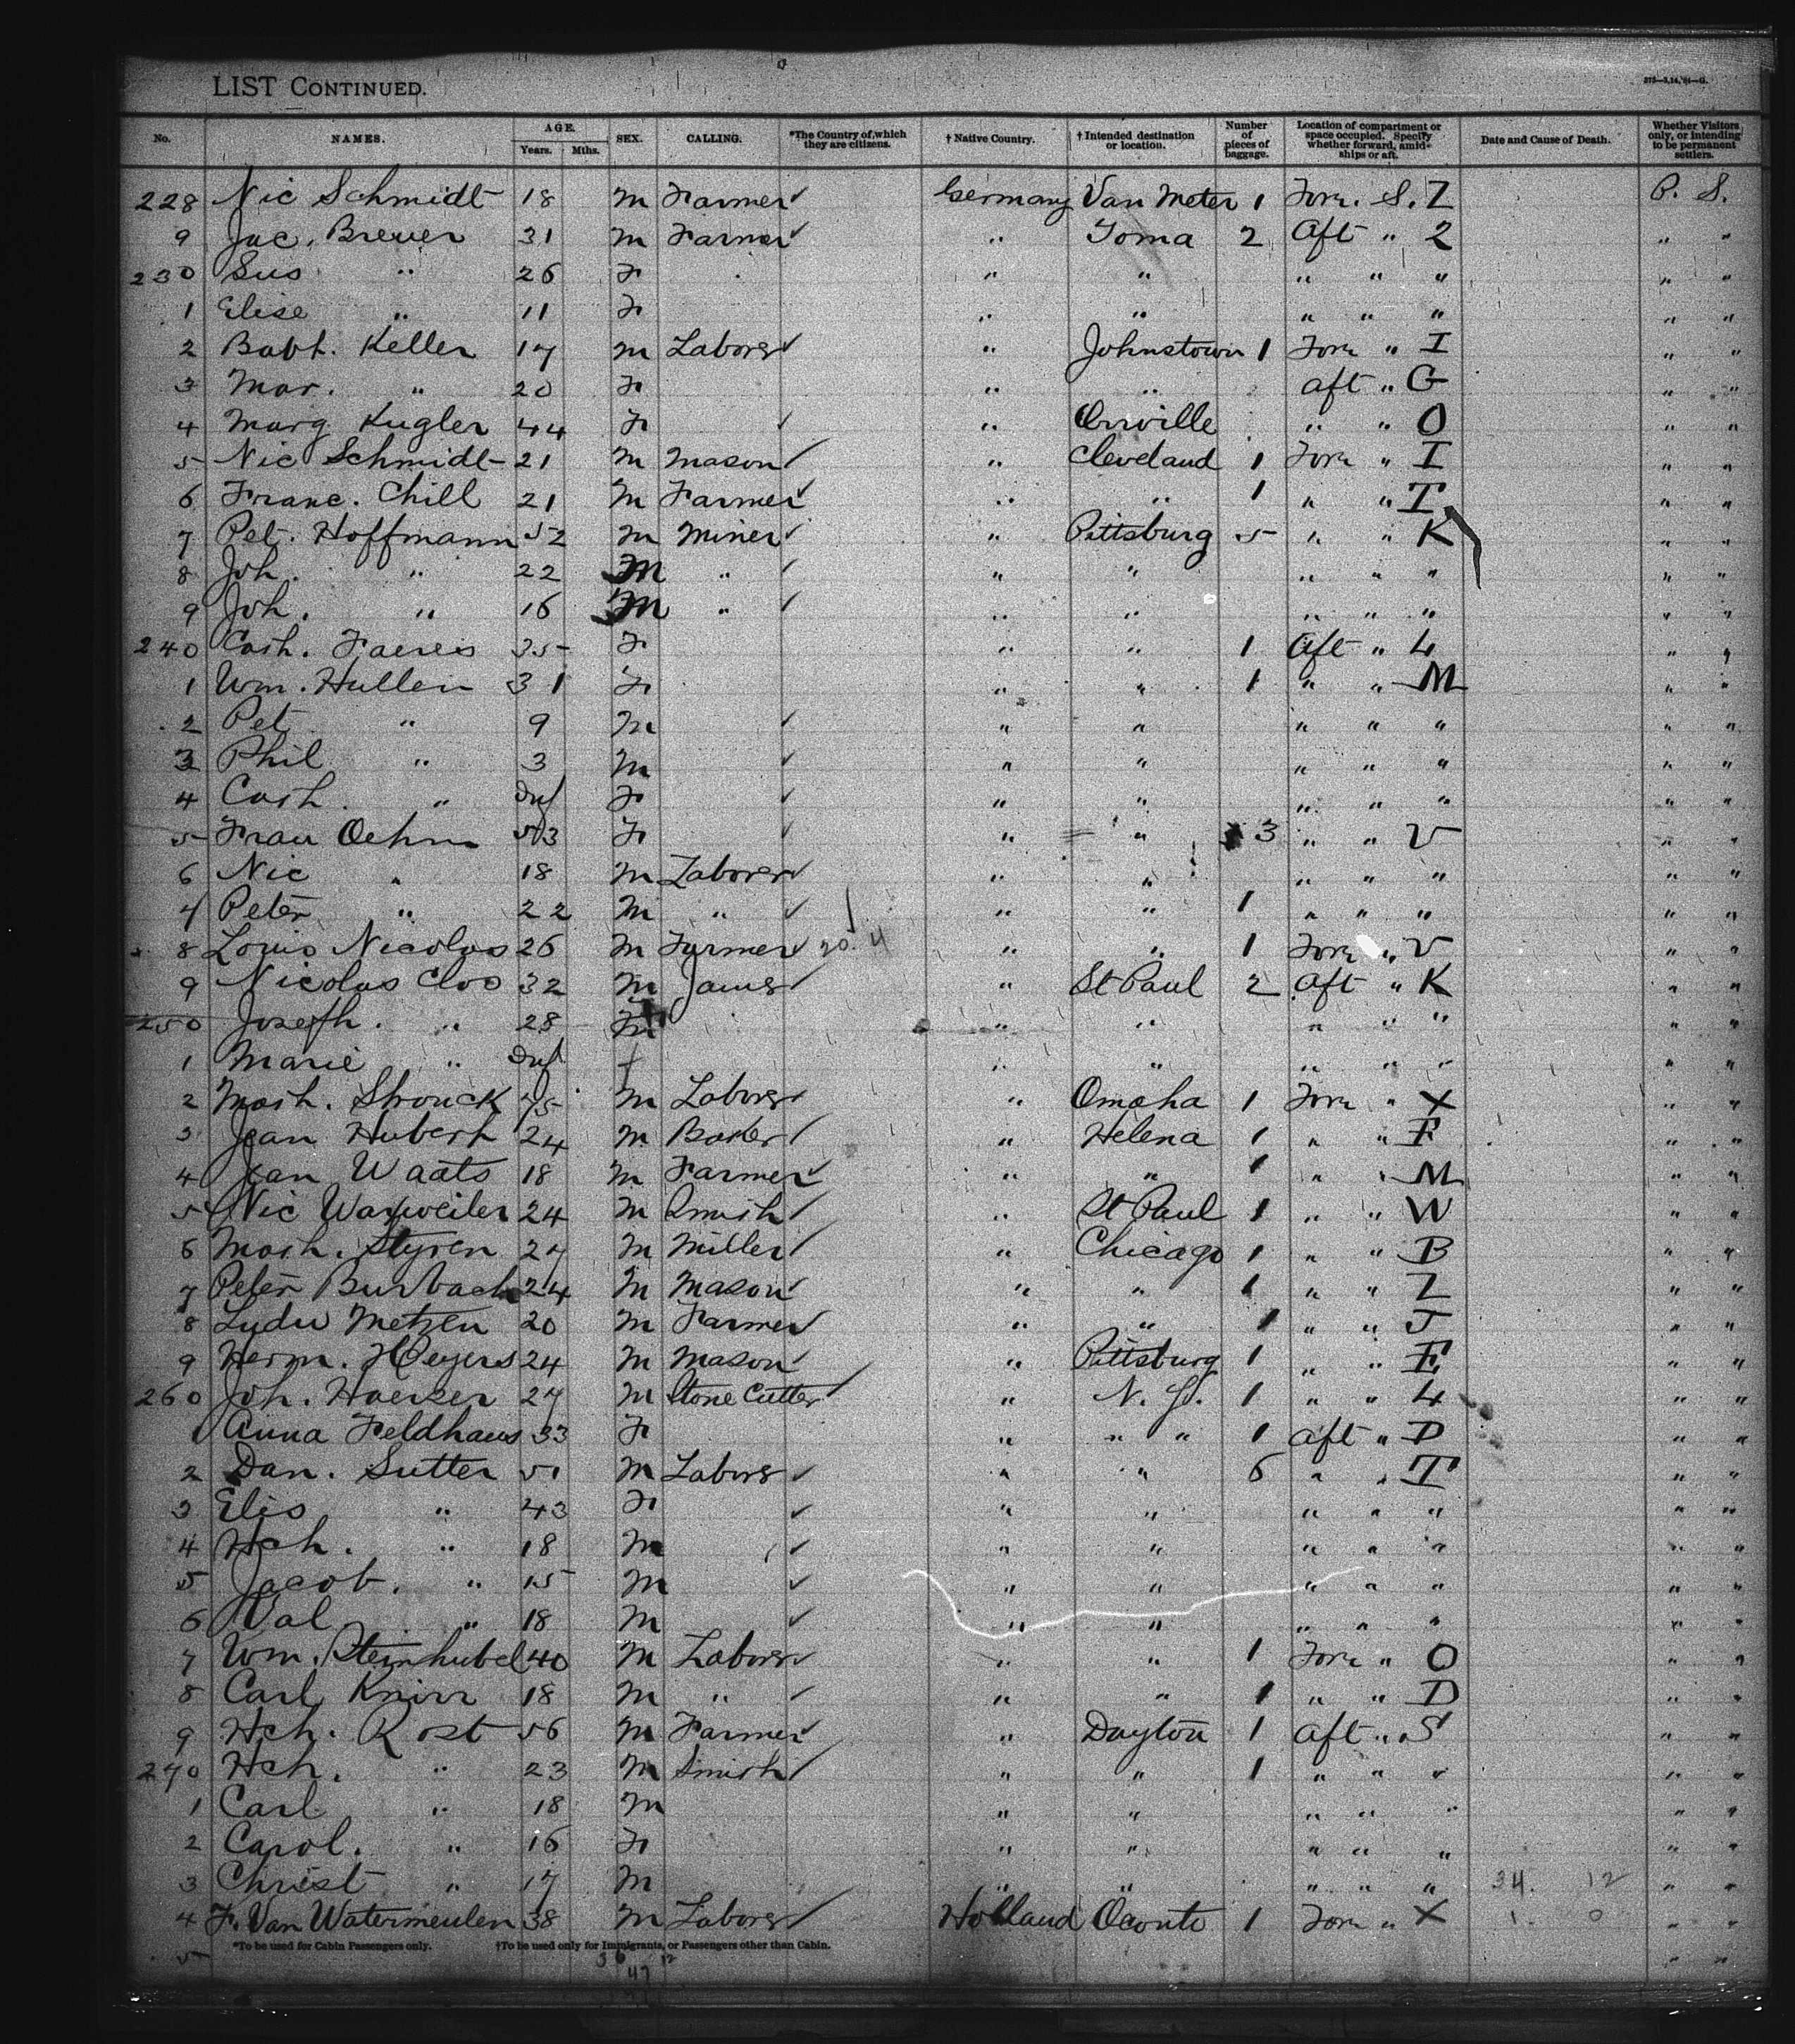 LIST CONTINUED.
No. NAMES. AGE. Years. Mths. SEX. CALLING. *The Country of which they are citizens. † Native Country. † Intended destination or location. Number of pieces of baggage. Location of compartment or space occupied. Specify whether forward, amidships or aft. Date and Cause of Death. Whether Visitors only, or intending to be permanent settlers.
228 Nic Schmidt 18 M Farmer ✓ Germany Van Meter 1 Forw. S. Z P. S.
9 Jac. Brewer 31 M Farmer ✓ " 2 Aft " 2 " "
230 Sus " 26 F " " " " " " "
1 Elise " 11 F " " " " " " "
2 Babt. Keller 17 M Laborer ✓ " Johnstown 1 Forw " I " "
3 Mar. " 20 F " " aft " G " "
4 Marg Kugler 44 F ✓ " Orrville " " O " "
5 Nic Schmidt 21 M Mason ✓ " Cleveland 1 Forw " I " "
6 Franc. Chill 21 M Farmer ✓ " " 1 " " T " "
7 Pet. Hoffmann 52 M Miner ✓ " Pittsburg 5 " " K " "
8 Joh. " 22 M " ✓ " " " " " " "
9 Joh. " 16 M " ✓ " " " " " " "
240 Cath. 35 F " " 1 Aft " 4 " "
1 Wm. Hullen 31 F " " 1 " " M " "
2 Pet " 9 M ✓ " " " " " " "
3 Phil " 3 M ✓ " " " " " " "
4 Cath. " Inf F ✓ " " " " " " "
5 Frau Oehm 53 F ✓ " " 3 " " V " "
6 Nic " 18 M Laborer ✓ " " " " " " "
7 Peter " 22 M " ✓ " " 1 " " " " "
8 Louis Nicolas 26 M Farmer ✓ " " 1 Forw " V " "
9 Nicolas Cloo 32 M ✓ " St Paul 2 Aft " K " "
250 Joseph. " 28 " " " " " " "
1 Marie " Inf f " " " " " " "
2 Math. Strouck M Laborer ✓ " Omaha 1 Forw " X " "
3 Jean Hubert 24 M Baker ✓ " Helena 1 " " F " "
4 Jean Waats 18 M Farmer ✓ " " 1 " " M " "
5 Nic Warweiler 24 M Smith ✓ " St Paul 1 " " W " "
6 Math. Styren 27 M Miller ✓ " Chicago 1 " " B " "
7 Peter Burbach 24 M Mason ✓ " " 1 " " Z " "
8 Metzen 20 M Farmer ✓ " " 1 " " J " "
9 Herm. Heyers 24 M Mason ✓ " Pittsburg 1 " " E " "
260 Joh. Haerzer 27 M Stone Cutter ✓ " N. Y. 1 " " 4 " "
1 Anna Feldhaus 33 F " " " 1 Aft " D " "
2 Dan. Sutter 51 M Laborer ✓ " " 6 " " T " "
3 Elis " 43 F ✓ " " " " " " "
4 Hch. " 18 M ✓ " " " " " " "
5 Jacob. " 15 M ✓ " " " " " " "
6 Val " 18 M ✓ " " " " " " "
7 Wm. Steinhubel 40 M Laborer ✓ " " 1 Forw " O " "
8 Carl Knirr 18 M " ✓ " " 1 " " D " "
9 Hch. Rost 56 M Farmer ✓ " Dayton 1 Aft " S " "
270 Hch. " 23 M Smith ✓ " " 1 " " " " "
1 Carl " 18 M " " " " " " "
2 Carol. " 16 F " " " " " " "
3 Christ " 17 M " " " " " 34. 12 " "
4 F. Van Watermeulen 38 M Laborer ✓ Holland Oconto 1 Forw " X 1. 0 " "
*To be used for Cabin Passengers only. †To be used only for Immigrants, or Passengers other than Cabin.
5 " "
47